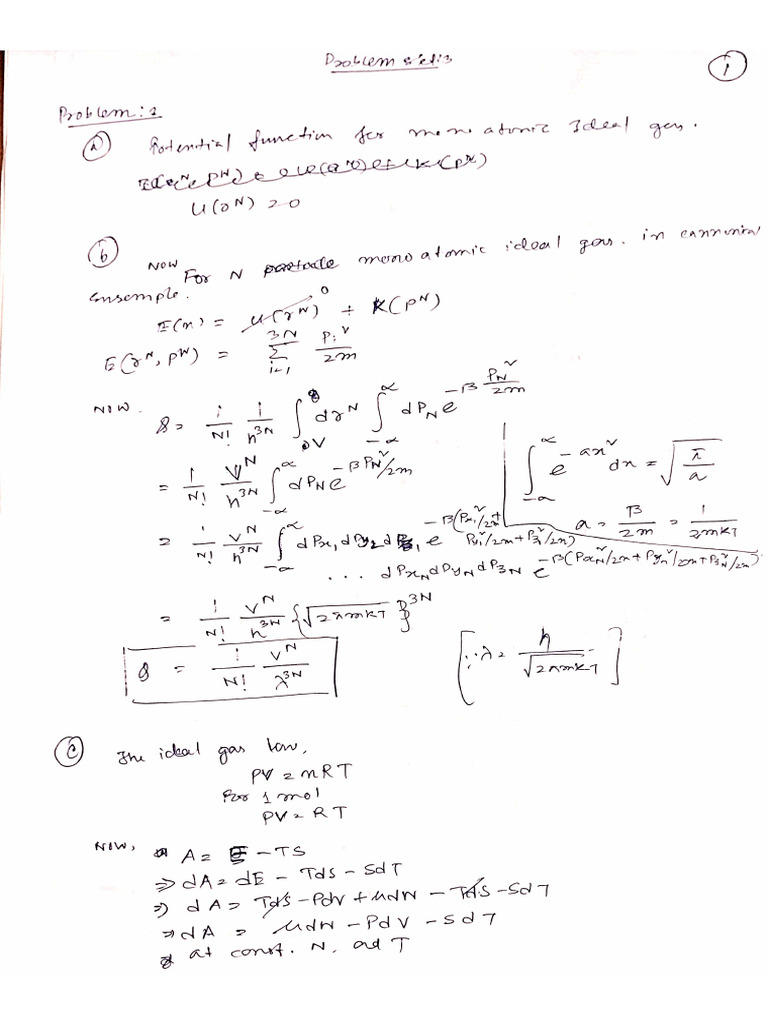 Problem set:3
1
Problem:1
(a) Potential function for mono atomic Ideal gas.
U(r^N) = 0
(b) Now For N monoatomic ideal gas. in cannonical
Ensemple.
E(n) = U(r^N) 0 + K(p^N)
E(r^N, p^N) = Σ_{i=1}^{3N} P_i²/2m
Now. Q = 1/N! 1/h^{3N} ∫_{0}^{V} dr^N ∫_{-∞}^{∞} dP_N e^{-β P_N²/2m}
= 1/N! V^N/h^{3N} ∫_{-∞}^{∞} dP_N e^{-β P_N²/2m}
∫_{-∞}^{∞} e^{-ax²} dx = √(π/a)
a = β/2m = 1/2mkT
= 1/N! V^N/h^{3N} ∫_{-∞}^{∞} dP_{x1} dP_{y2} dP_{z1} e^{-β(P_{x1}²/2m + P_{y1}²/2m + P_{z1}²/2m)}
... dP_{xN} dP_{yN} dP_{zN} e^{-β(P_{xN}²/2m + P_{yN}²/2m + P_{zN}²/2m)}
= 1/N! V^N/h^{3N} {√(2πmkT)}^{3N}
Q = 1/N! V^N/λ^{3N} [∵ λ = h/√(2πmkT)]
(c) The ideal gas law,
PV = nRT
For 1 mol
PV = RT
Now, A = E - TS
⇒ dA = dE - TdS - SdT
⇒ dA = TdS - PdV + μdN - TdS - SdT
⇒ dA = μdN - PdV - SdT
at const. N, ad T